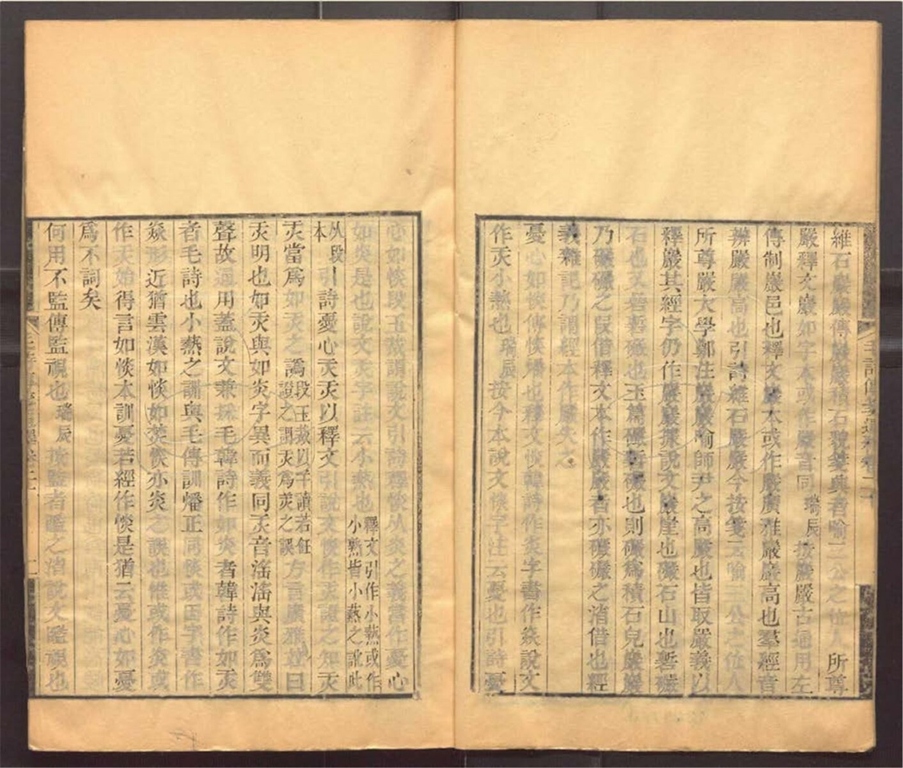 維石巖巖傳巖巖積石貌箋興者喻三公之位人所尊
嚴釋文嚴如字本或作巖音同瑞辰按巖嚴古通用左
傳制巖邑也釋文巖本或作嚴廣雅巖巖高也羣經音
辨嚴嚴高也引詩維石嚴嚴今按箋云喻三公之位人
所尊嚴大學鄭注嚴嚴喻師尹之高嚴也皆取嚴義以
釋嚴其經字仍作嚴嚴據說文巖崖也礹石山也
石也則礹為積石皃嚴嚴
乃礹礹之叚借釋文本作嚴嚴者亦礹礹之渻借也經
義雜記乃謂經本作嚴失之
憂心如惔傳惔燔也釋文惔韓詩作炎字書作焱說文
作㶣小爇也瑞辰按今本說文惔字注云憂也引詩憂
心如惔段玉裁謂說文引詩釋惔从炎之義當作憂心
如炎是也說文㶣字註云小爇也釋文引作小熱或作小熟皆小爇之訛此从段本
引詩憂心㶣㶣以釋文引說文惔作㶣證之知㶣
㶣當為如㶣之譌段玉裁以干讀若飪證之謂㶣為羙之誤方言廣雅竝曰
㶣明也如㶣與如炎字異而義同㶣音滛滛與炎為雙
聲故通用蓋說文兼採毛韓詩作如炎者韓詩作如㶣
者毛詩也小爇之訓與毛傳訓燔正同後或因字書作
焱形近猶雲漢如惔如焚惔亦炎之譌也惟或作炎或
作㶣始得言如惔本訓憂若經作惔是猶云憂心如憂
為不詞矣
何用不監傳監視也瑞辰按監者䁠之渻說文䁠視也